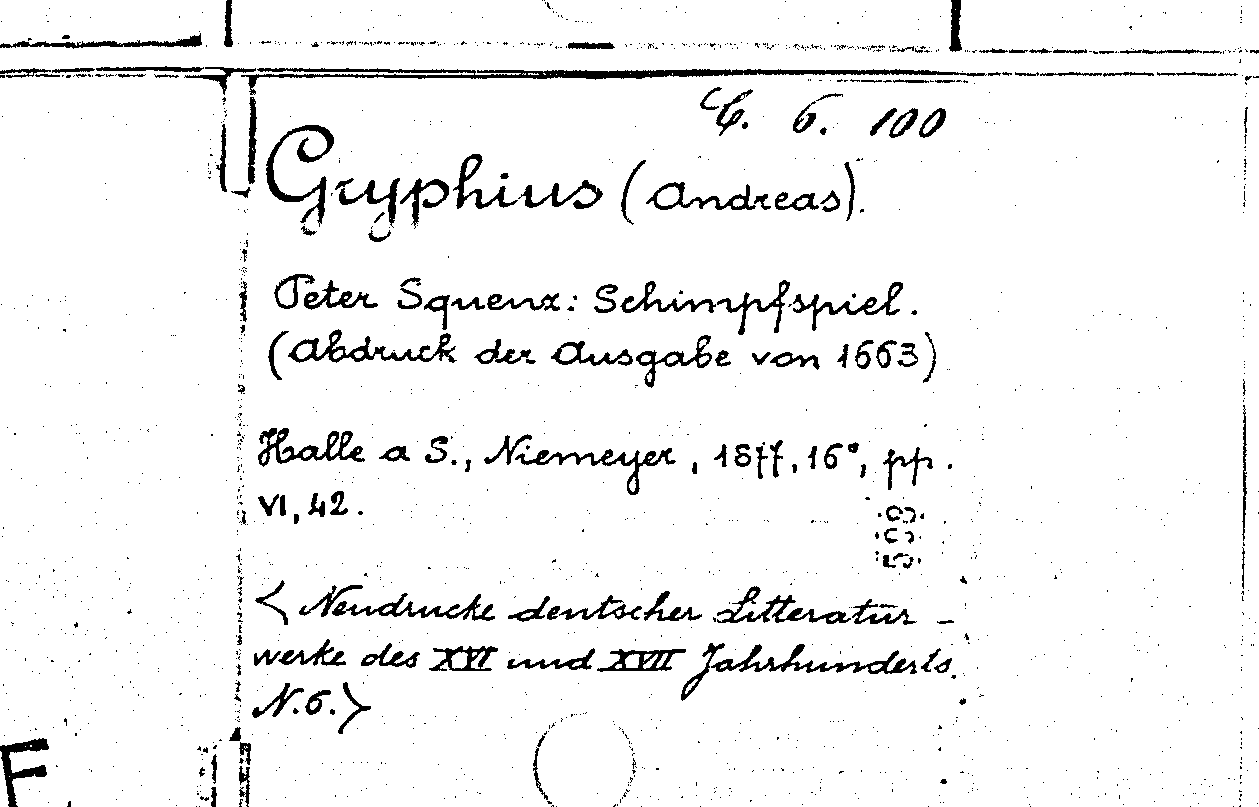 C. 6. 100
Gryphius (Andreas).
Peter Squenz: Schimpfspiel.
(Abdruck der Ausgabe von 1663)
Halle a S., Niemeyer, 1877, 16°, pp.
VI, 42.
508
<Neudrucke deutscher Litteratur-
werke des XVI und XVII Jahrhunderts.
N.6.>
F